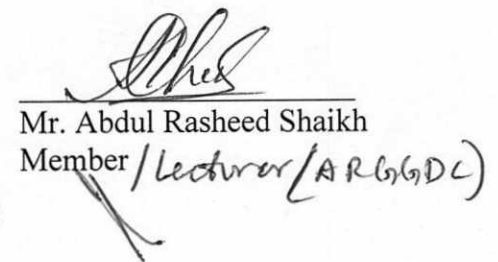 Mr. Abdul Rasheed Shaikh
Member / Lecturer (ARGGDC)